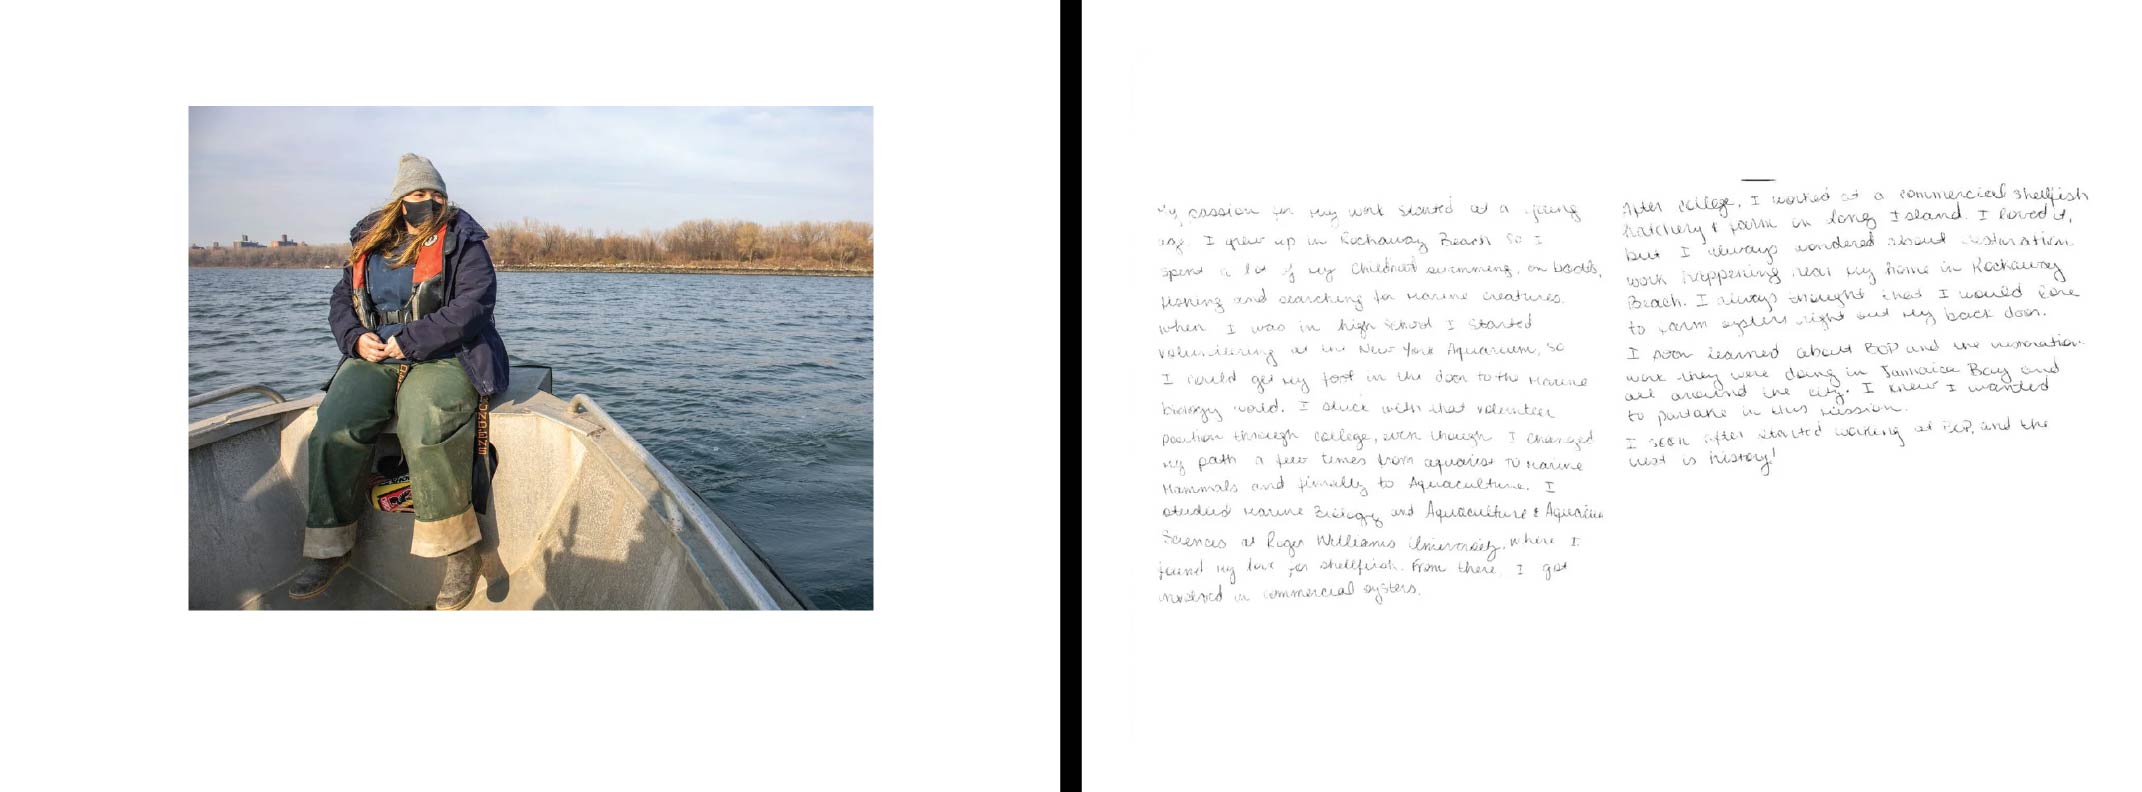 My passion for my work started at a young
age. I grew up in Rockaway Beach so I
spent a lot of my childhood swimming, on boats,
fishing and searching for marine creatures.
When I was in high school I started
volunteering at the New York Aquarium, so
I could get my foot in the door to the marine
biology world. I stuck with that volunteer
position through college, even though I changed
my path a few times from aquarist to marine
mammals and finally to Aquaculture. I
studied marine Biology and Aquaculture & Aquarium
Sciences at Roger Williams University, where I
found my love for shellfish. From there, I got
involved in commercial oysters.
After college, I worked at a commercial shellfish
hatchery & farm on long Island. I loved it,
but I always wondered about restoration
work happening near my home in Rockaway
Beach. I always thought that I would love
to farm oysters right out my back door.
I soon learned about BOP and the restoration
work they were doing in Jamaica Bay and
all around the city. I knew I wanted
to partake in this mission.
I soon after started working at BOP, and the
rest is history!